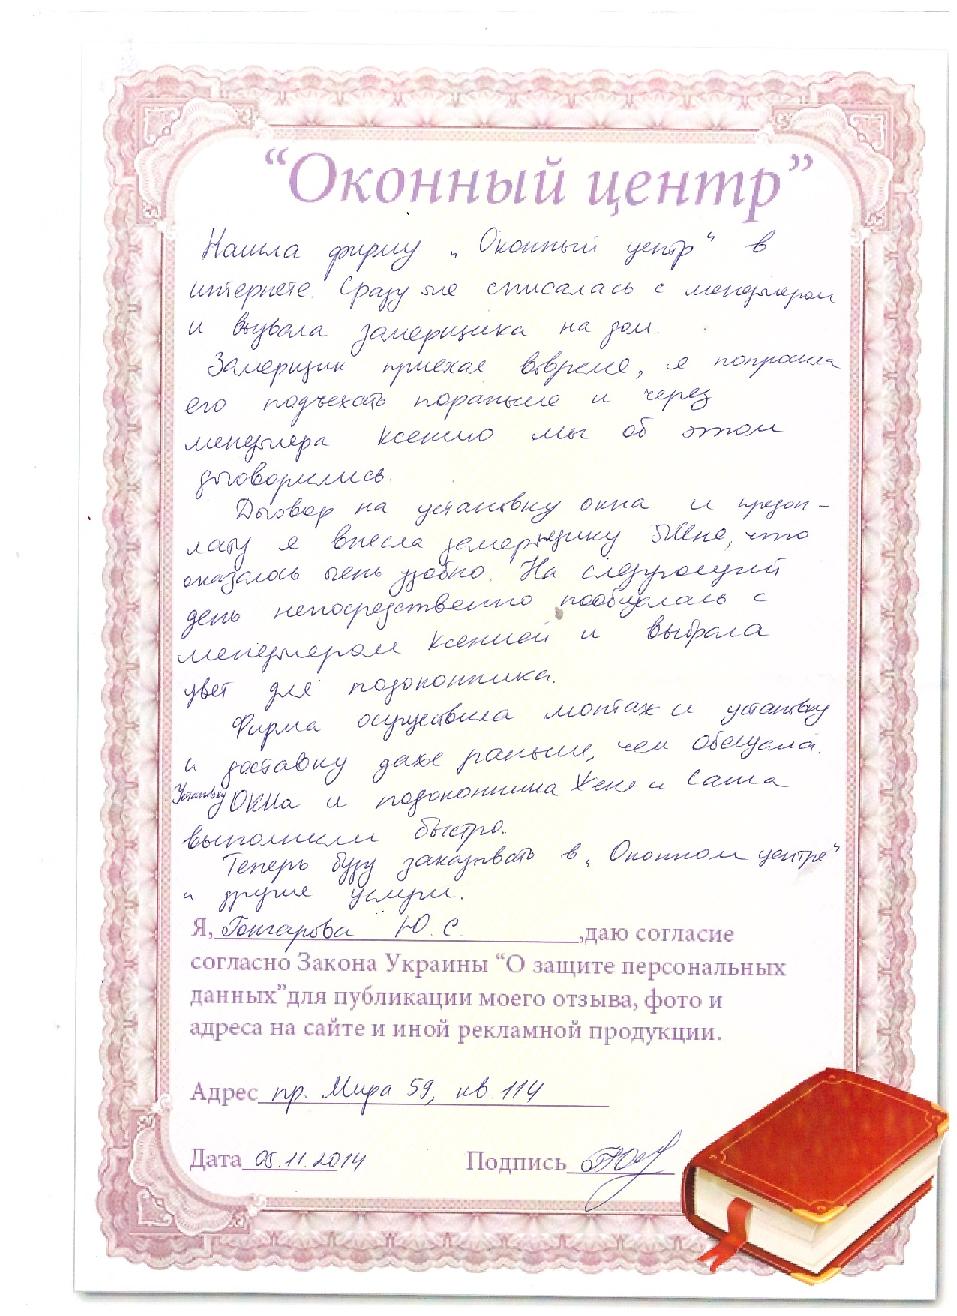 “Оконный центр”
Нашла фирму „Оконный центр“ в
интернете. Сразу же списалась с менеджером
и вызвала замерщика на дом.
Замерщик приехал вовремя, я попросила
его подъехать пораньше и через
менеджера Ксению мы об этом
договорились.
Договор на установку окна и предоп-
лату я внесла замерщику Жене, что
оказалось очень удобно. На следующий
день непосредственно пообщалась с
менеджером Ксенией и выбрала
цвет для подоконника.
Фирма осуществила монтаж и установку
и доставку даже раньше, чем обещала.
Установку окна и подоконника Женя и Саша
выполнили быстро.
Теперь буду заказывать в „Оконном центре“
и другие услуги.
Я, Гончарова Ю. С. ,даю согласие
согласно Закона Украины “О защите персональных
данных”для публикации моего отзыва, фото и
адреса на сайте и иной рекламной продукции.
Адрес пр. Мира 59, кв. 114
Дата 05.11.2014 Подпись